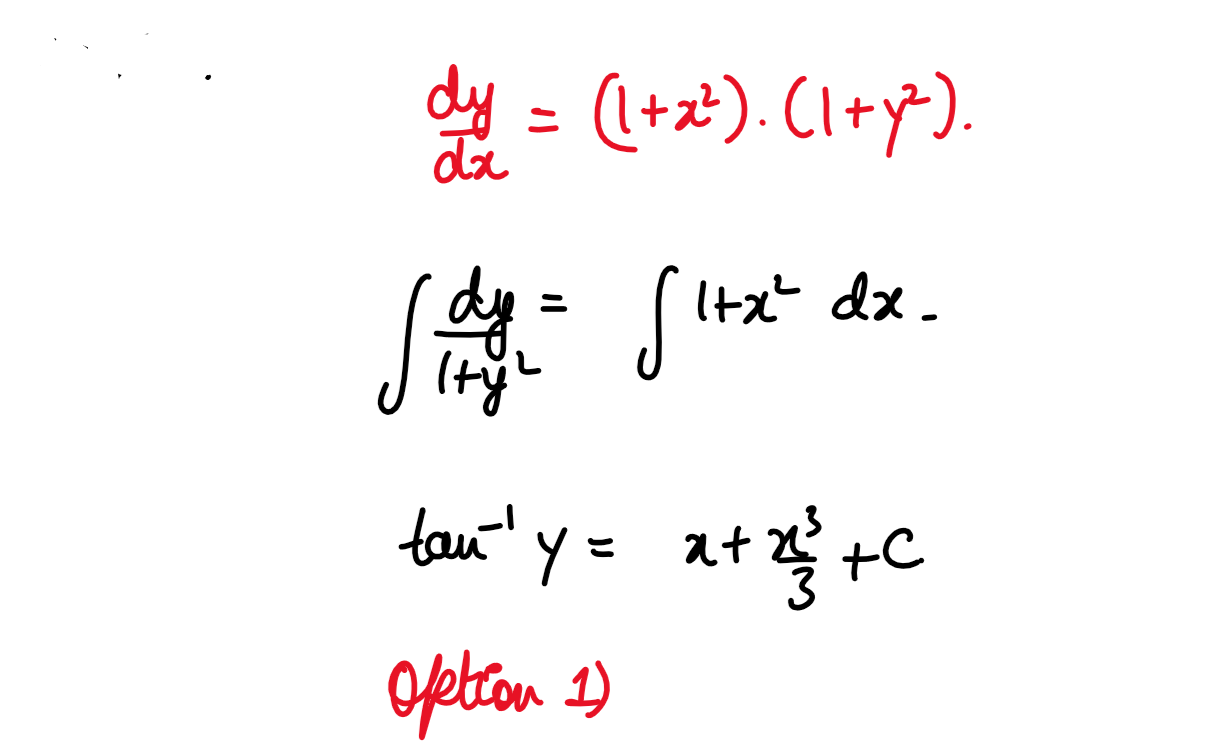 dy/dx = (1+x²).(1+y²).
∫ dy/1+y² = ∫ 1+x² dx.
tan⁻¹ y = x + x³/3 + C
Option 1)